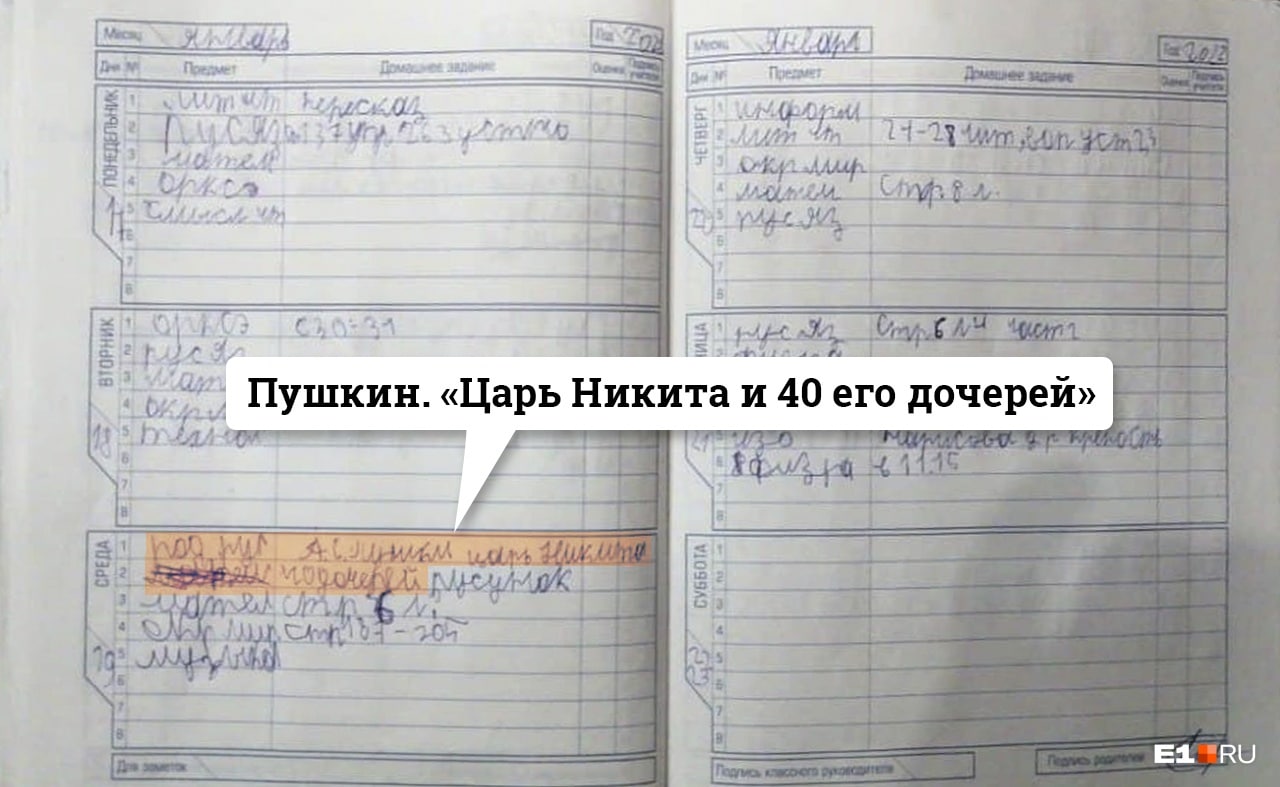 Месяц январь Год 2022
Дни № Предмет Домашнее задание Оценка Подпись учителя
ПОНЕДЕЛЬНИК
17
1 лит чт пересказ
2 Рус яз 137 упр 263 устно
3 матем
4 орксэ
5 смысл чт
6
7
8
ВТОРНИК
18
1 орксэ с30-31
2 рус яз
3 мат
4 окр м
5 технол
6
7
8
Пушкин. «Царь Никита и 40 его дочерей»
СРЕДА
19
1 род рус А.С. Пушкин царь Никита
2 40 дочерей русунок
3 матем стр 6 л.
4 окр мир стр 137-205
5 музыка
6
7
8
Для заметок
Месяц Январь Год 2022
Дни № Предмет Домашнее задание Оценка Подпись учителя
ЧЕТВЕРГ
20
1 информ
2 лит чт 27-28 чит, вып уст 2,3
3 окр мир
4 матем Стр. 8 л.
5 рус яз
6
7
8
НИЦА
21
1 рус яз Стр 6 л 4 часть 2
2
изо нарисова крепость
6 физра в 11.15
7
8
СУББОТА
22
23
1
2
3
4
5
6
7
8
Подпись классного руководителя
Подпись родителей
E1.RU